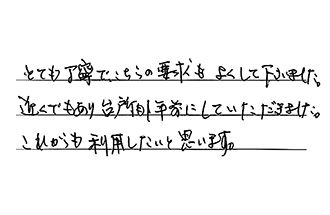 とても丁寧で、こちらの要求もよくして下さいました。
近くでもあり台所も1年分にしていただきました。
これからも利用したいと思います。